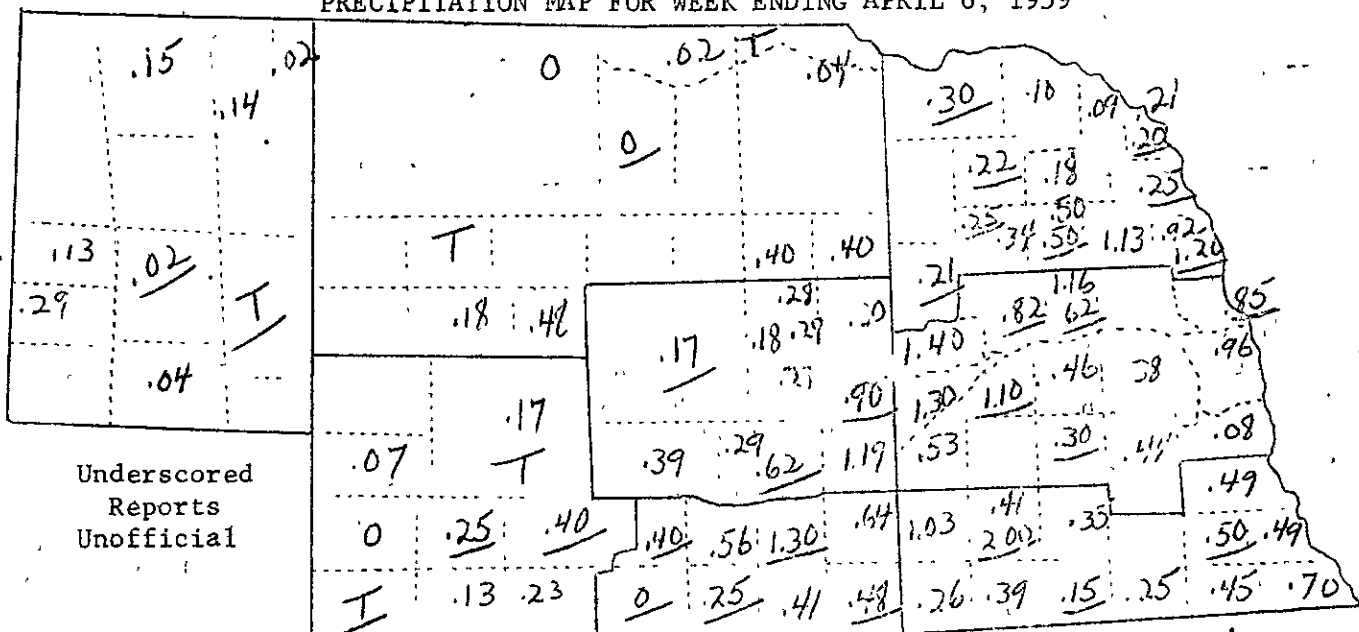 PRECIPITATION MAP FOR WEEK ENDING APRIL 6, 1959
.15 .02 0 .02 T .04
.14 .30 .10 .09 .21
.20
0 .22 .18 .25
.25 .34 .50 .50 1.13 .92
1.20
.13 .02 T .40 .40 .21
.29 T .18 .28 1.16 .85
.82 .62
.17 .18 .29 1.40 .96
.04 .46 .38
.17 .90 1.30 1.10
.07 T .39 .29 .62 1.19 .53 .30 .08
Underscored
Reports
Unofficial
.49
0 .25 .40 .40 .56 1.30 .64 1.03 .41 .35 .50 .49
T .13 .23 0 .25 .41 .48 .26 .39 .15 .25 .45 .70